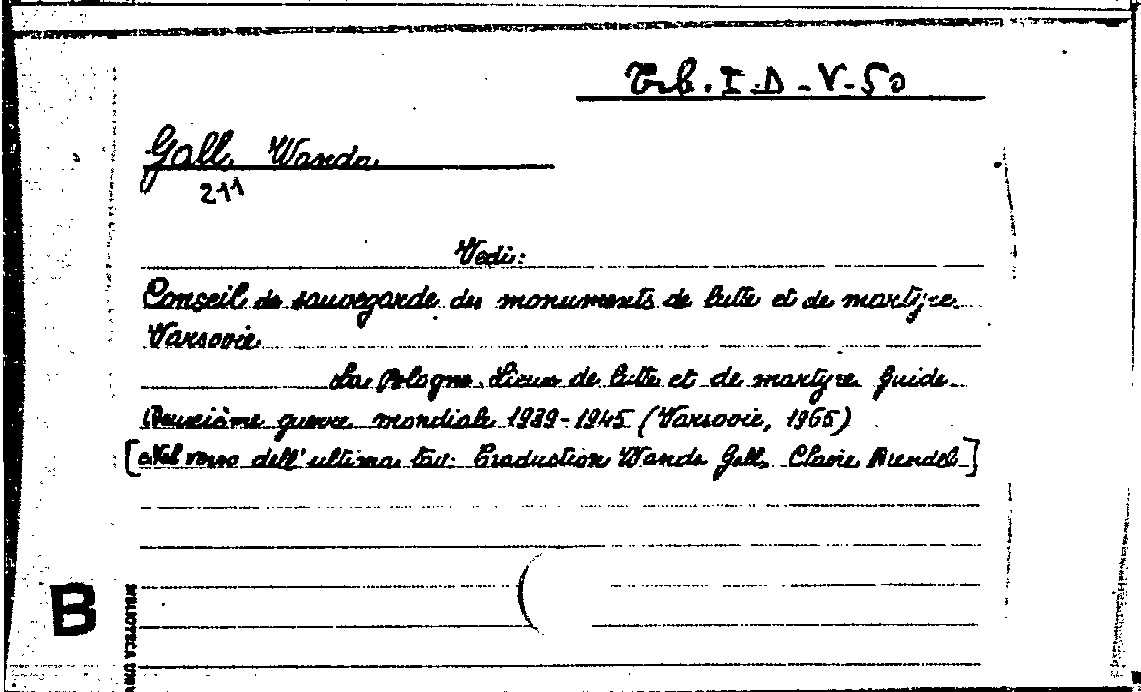 Trb. I.D-V-50
Gall, Wanda
211
Vedi:
Conseil de sauvegarde des monuments de lutte et de martyre.
Varsovie.
La Pologne. Lieux de lutte et de martyre. Guide.
Deuxième guerre mondiale 1939-1945 (Varsovie, 1965)
[Nel verso dell'ultima tav: Traduction Wanda Gall, Claire Brendel]
B
BIBLIOTECA UNIV